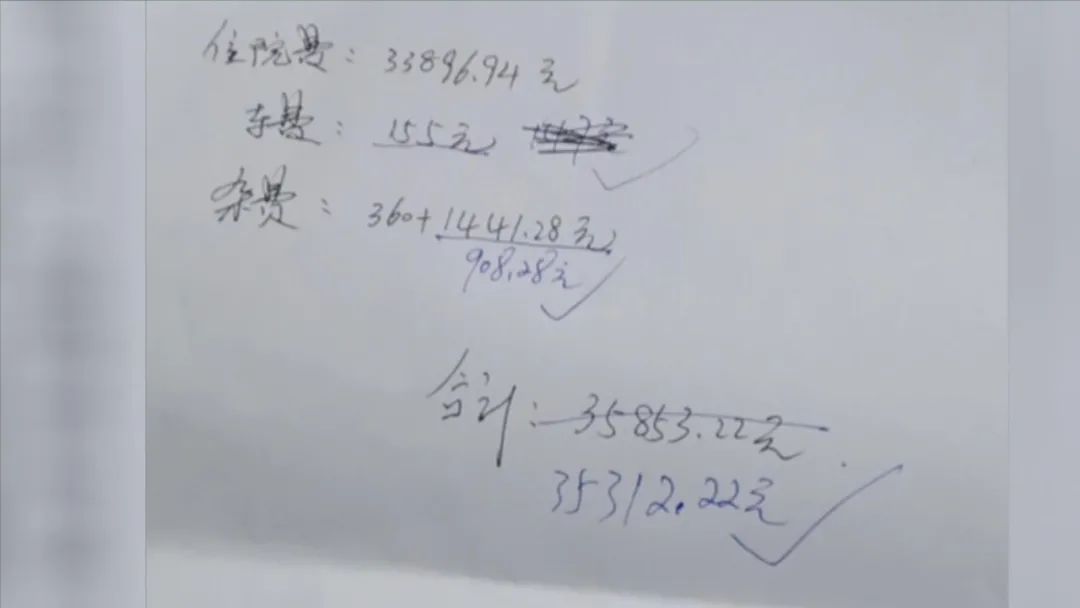 住院费：33896.94元
车费：155元
杂费：360+1441.28元
908.28元
合计：35853.22元
35312.22元